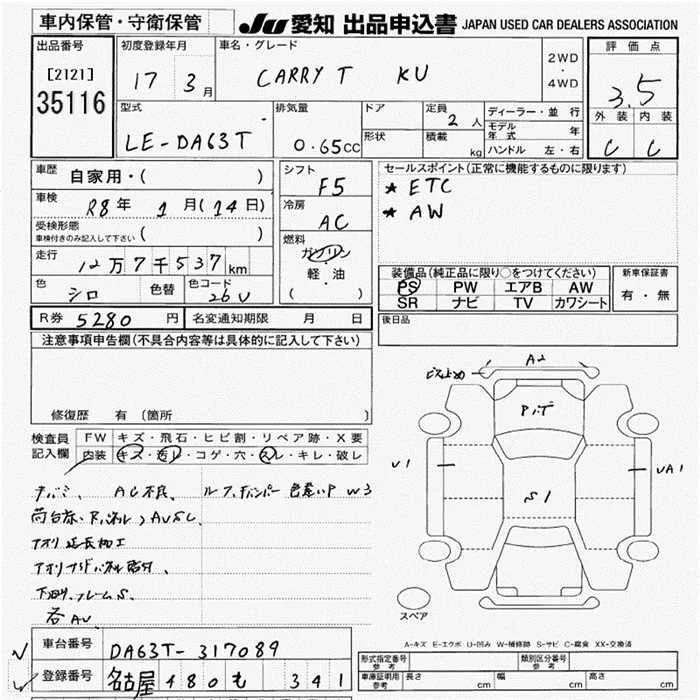 車内保管・守衛保管
JU 愛知 出品申込書 JAPAN USED CAR DEALERS ASSOCIATION
出品番号
[2121]
35116
初度登録年月
17 3月
車名・グレード
CARRY T KU
2WD
・
4WD
評価点
3.5
外装 内装
C C
型式
LE-DA63T
排気量
0.65cc
ドア
形状
定員
2人
積載
kg
ディーラー・並行
モデル年式 年
ハンドル 左・右
車歴
自家用・( )
車検
R8年 1月(14日)
受検形態
車検付きのみ記入して下さい ( )
走行
12万7千537km
色
シロ
色替
色コード
26U
シフト
F5
冷房
AC
燃料
ガソリン
・
軽・油
( )
セールスポイント(正常に機能するものに限ります)
* ETC
* AW
装備品(純正品に限り○をつけてください)
PS PW エアB AW
SR ナビ TV カワシート
新車保証書
有・無
R券 5280 円
名変通知期限 月 日
後日品
注意事項申告欄(不具合内容等は具体的に記入して下さい)
修復歴 有 (箇所 )
検査員
記入欄
FW キズ・飛石・ヒビ割・リペア跡・X要
内装 キズ・汚レ・コゲ・穴・スレ・キレ・破レ
AC不良、
W3
アオリ延長加工
下回り、フレームS、
各AU
A2
P.T
U1
S1
UA1
スペア
A-キズ E-エクボ U-凹み W-補修跡 S-サビ C-腐食 XX-交換済
車台番号
DA63T-317089
登録番号
名古屋 480 も 341
形式指定番号
参考
類別区分番号
参考
車庫証明用
参考
長さ cm 幅 cm 高さ cm